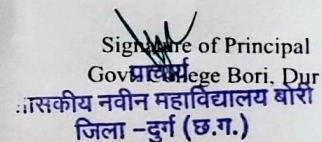 Signature of Principal
प्राचार्य
Govt. College Bori, Dur
शासकीय नवीन महाविद्यालय बोरी
जिला –दुर्ग (छ.ग.)